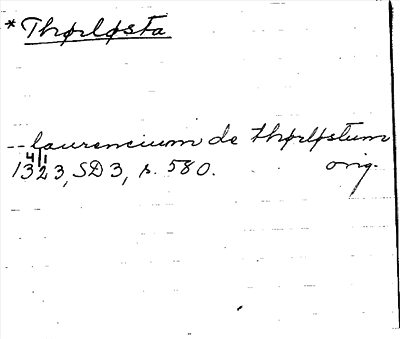 * Thørløsta
-- laurencium de thørløstum
1323 4/11, SD 3, s. 580. orig.